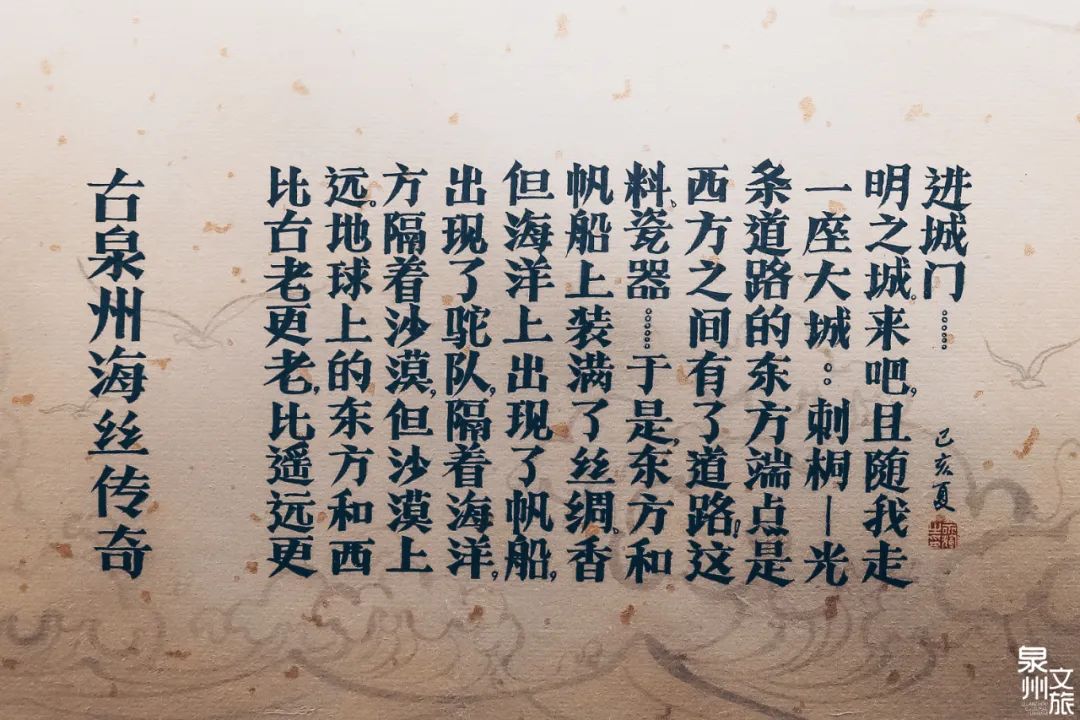 古泉州海丝传奇
比古老更老,比遥远更
远。地球上的东方和西
方隔着沙漠,但沙漠上
出现了驼队,隔着海洋,
但海洋上出现了帆船,
帆船上装满了丝绸、香
料、瓷器……于是,东方和
西方之间有了道路!这
条道路的东方端点是
一座大城:刺桐—光
明之城。来吧,且随我走
进城门……
己亥夏
泉州
文旅